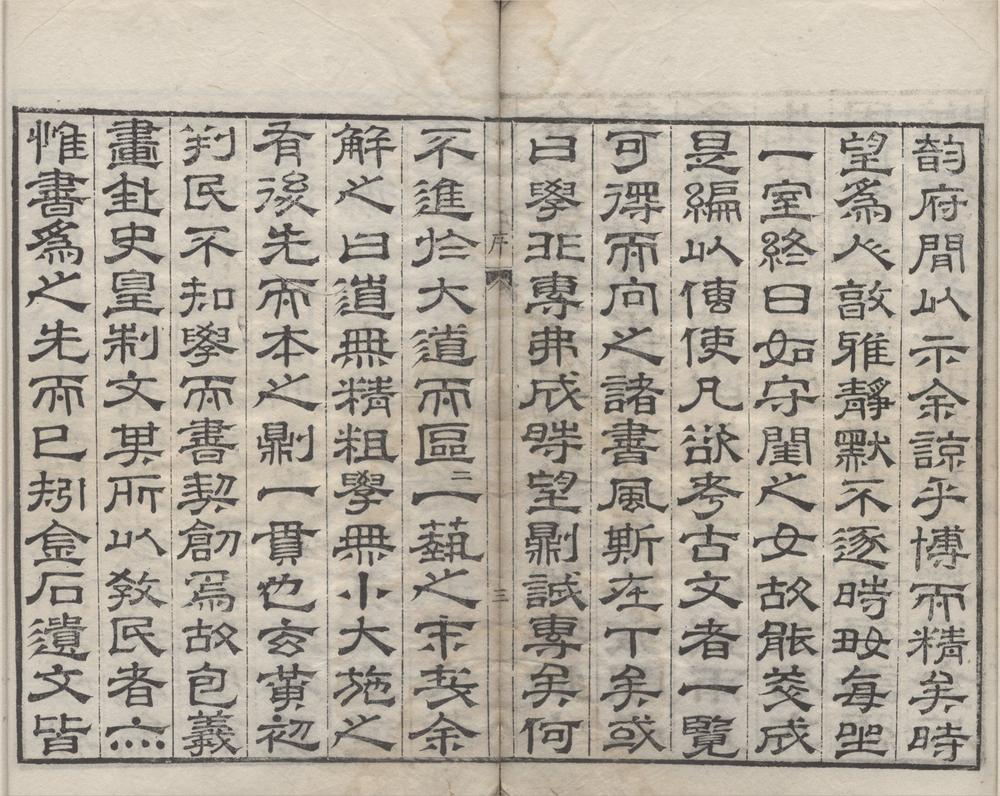 韵府閒以示余諒乎博而精矣時
望為人敦雅靜默不逐時好每坐
一室終日如守閨之女故能羙成
是編以傳使凡欲考古文者一覽
可得而向之諸書風斯在下矣或
曰學非專弗成時望剬誠專矣何
序
三
不進於大道而區二一藝之末㢤余
解之曰道無精粗學無小大施之
有後先而本之剬一貫也玄黃初
判民不知學而書契創焉故包羲
畫卦史皇制文其所以敎民者亦
惟書為之先而已矧金石遺文皆